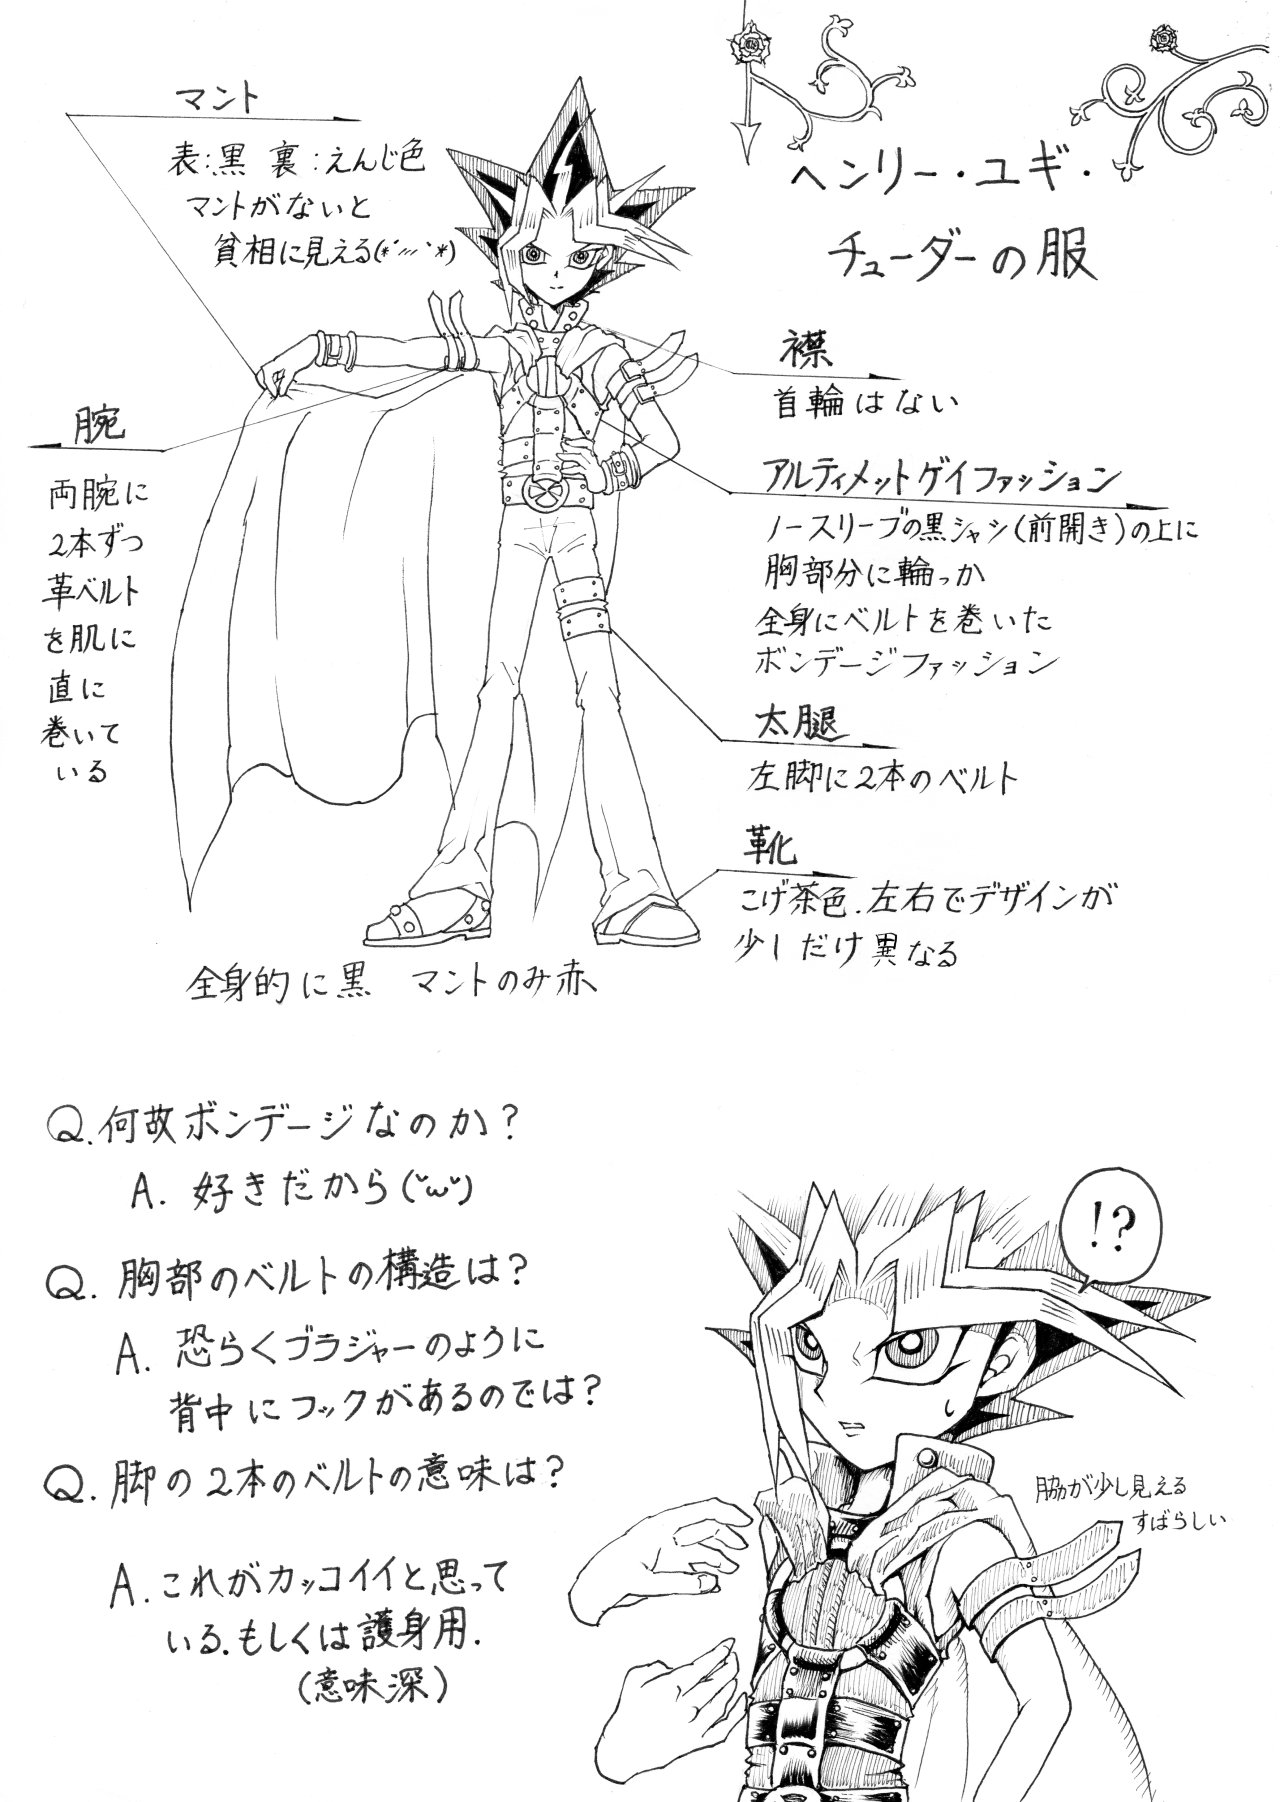 ヘンリー・ユギ・
チューダーの服
マント
表:黒 裏:えんじ色
マントがないと
貧相に見える(*´///`*)
襟
首輪はない
腕
両腕に
2本ずつ
革ベルト
を肌に
直に
巻いて
いる
アルティメットゲイファッション
ノースリーブの黒シャシ(前開き)の上に
胸部分に輪っか
全身にベルトを巻いた
ボンデージファッション
太腿
左脚に2本のベルト
靴
こげ茶色.左右でデザインが
少しだけ異なる
全身的に黒 マントのみ赤
Q.何故ボンデージなのか?
A. 好きだから(˘ω˘)
Q. 胸部のベルトの構造は?
A. 恐らくブラジャーのように
背中にフックがあるのでは?
Q. 脚の2本のベルトの意味は?
A.これがカッコイイと思って
いる.もしくは護身用.
(意味深)
!?
脇が少し見える
すばらしい